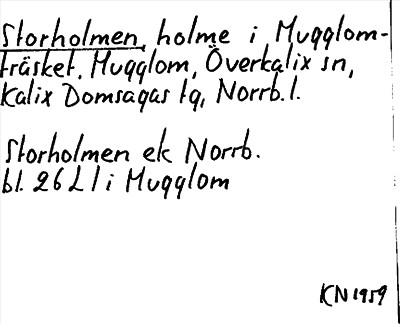 Storholmen, holme i Mugglom-
träsket, Mugglom, Överkalix sn,
Kalix Domsagas tg, Norrb. l.
Storholmen ek Norrb.
bl. 26 L l i Mugglom
KN 1959